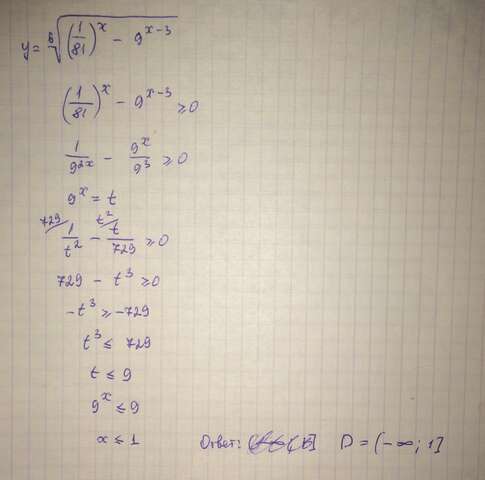 y = ⁶√((1/81)^x − 9^(x−3))
(1/81)^x − 9^(x−3) ≥ 0
1/9^(2x) − 9^x/9^3 ≥ 0
9^x = t
729/ 1/t^2 − t^2/ t/729 ≥ 0
729 − t^3 ≥ 0
−t^3 ≥ −729
t^3 ≤ 729
t ≤ 9
9^x ≤ 9
x ≤ 1 Ответ: D = (−∞; 1]